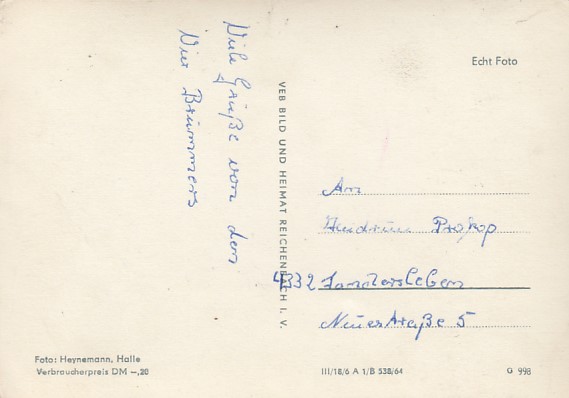 Viele Grüße von den
Vier Brummers
VEB BILD UND HEIMAT REICHENBACH I. V.
Echt Foto
An
Heidrun Prokop
4332 Sandersleben
Neuestraße 5
Foto: Heynemann, Halle
Verbraucherpreis DM –,20
III/18/6 A 1/B 538/64
G 998